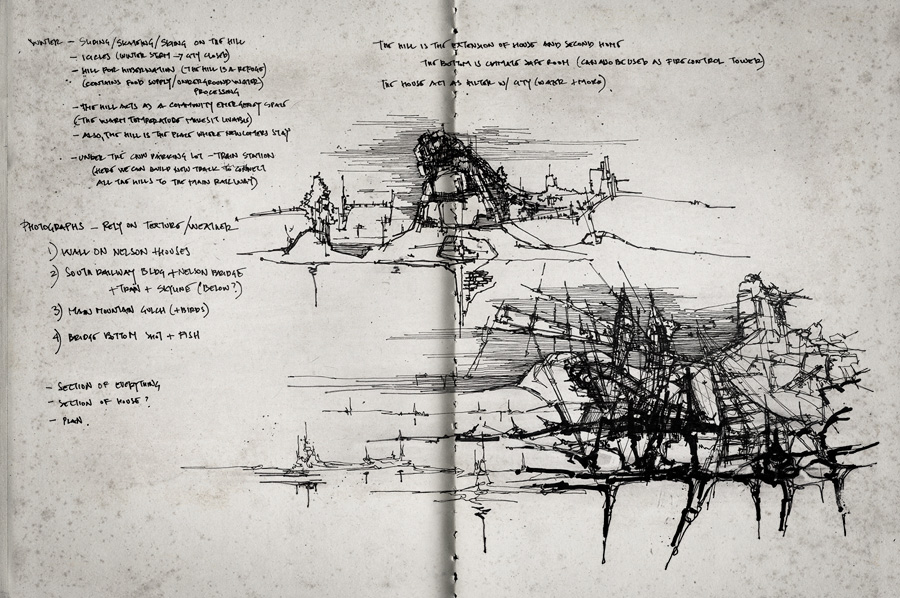 WINTER – SLIDING/SKATING/SKIING ON THE HILL
– ICICLES (WINTER STEM → CITY CLOSED)
– HILL FOR HIBERNATION (THE HILL IS A REFUGE)
(CONTAINS FOOD SUPPLY/UNDERGROUND WATER)
PROCESSING
– THE HILL ACTS AS A COMMUNITY EMERGENCY SPACE
(THE WARM TEMPERATURE MAKES IT LIVABLE)
– ALSO, THE HILL IS THE PLACE WHERE NEWCOMERS STAY
– UNDER THE CNW PARKING LOT – TRAIN STATION
(HERE WE CAN BUILD NEW TRACK TO CONNECT
ALL THE HILLS TO THE MAIN RAILWAY)
PHOTOGRAPHS – RELY ON TEXTURE/WEATHER
1) WALL ON NELSON HOUSES
2) SOUTH RAILWAY BLDG + NELSON BRIDGE
+ TRAIN + SKYLINE (BELOW?)
3) MAIN MOUNTAIN GULCH (+BIRDS)
4) BRIDGE BOTTOM SHOT + FISH
– SECTION OF EVERYTHING
– SECTION OF HOUSE?
– PLAN.
THE HILL IS THE EXTENSION OF HOUSE AND SECOND HOME
THE BOTTOM IS CLIMATE SAFE ROOM (CAN ALSO BE USED AS FIRE CONTROL TOWER)
THE HOUSE ACT AS FILTER W/ CITY (WATER + MORE).